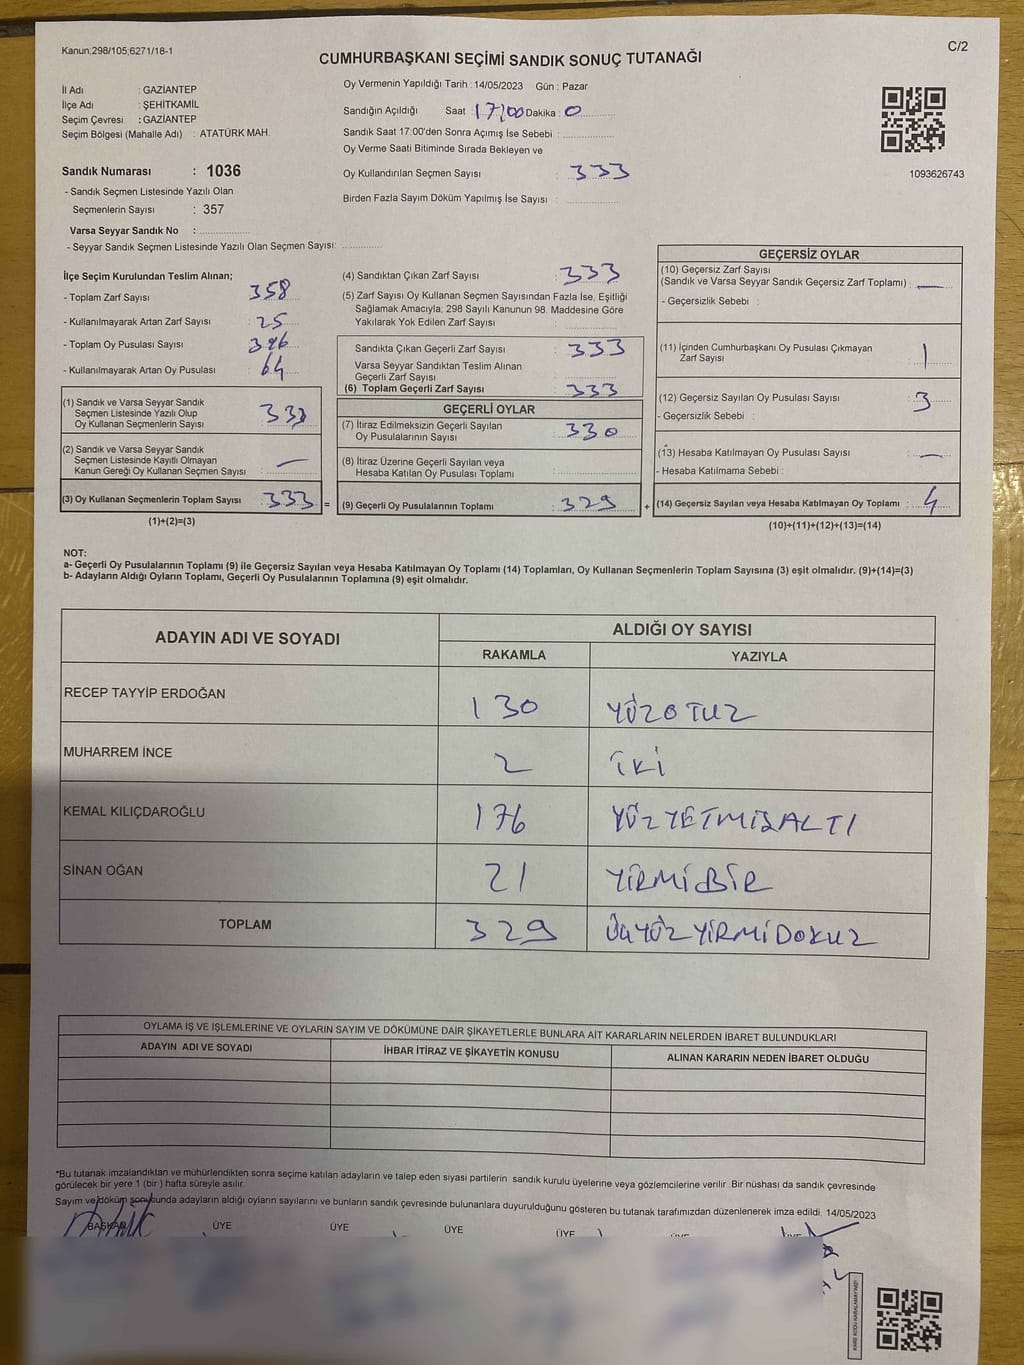 Kanun;298/105;6271/18-1
C/2
CUMHURBAŞKANI SEÇİMİ SANDIK SONUÇ TUTANAĞI
İl Adı : GAZİANTEP
İlçe Adı : ŞEHİTKAMİL
Seçim Çevresi : GAZİANTEP
Seçim Bölgesi (Mahalle Adı) : ATATÜRK MAH.
Oy Vermenin Yapıldığı Tarih : 14/05/2023 Gün : Pazar
Sandığın Açıldığı Saat : 17/00 Dakika : 0
Sandık Saat 17:00'den Sonra Açımış İse Sebebi :
Oy Verme Saati Bitiminde Sırada Bekleyen ve
Oy Kullandırılan Seçmen Sayısı : 333
Birden Fazla Sayım Döküm Yapılmış İse Sayısı :
1093626743
Sandık Numarası : 1036
- Sandık Seçmen Listesinde Yazılı Olan
Seçmenlerin Sayısı : 357
Varsa Seyyar Sandık No :
- Seyyar Sandık Seçmen Listesinde Yazılı Olan Seçmen Sayısı:
İlçe Seçim Kurulundan Teslim Alınan;
- Toplam Zarf Sayısı : 358
- Kullanılmayarak Artan Zarf Sayısı : 25
- Toplam Oy Pusulası Sayısı :
- Kullanılmayarak Artan Oy Pusulası : 64
(1) Sandık ve Varsa Seyyar Sandık
Seçmen Listesinde Yazılı Olup
Oy Kullanan Seçmenlerin Sayısı : 333
(2) Sandık ve Varsa Seyyar Sandık
Seçmen Listesinde Kayıtlı Olmayan
Kanun Gereği Oy Kullanan Seçmen Sayısı : —
(3) Oy Kullanan Seçmenlerin Toplam Sayısı : 333 =
(1)+(2)=(3)
(4) Sandıktan Çıkan Zarf Sayısı : 333
(5) Zarf Sayısı Oy Kullanan Seçmen Sayısından Fazla İse, Eşitliği
Sağlamak Amacıyla; 298 Sayılı Kanunun 98. Maddesine Göre
Yakılarak Yok Edilen Zarf Sayısı :
Sandıkta Çıkan Geçerli Zarf Sayısı : 333
Varsa Seyyar Sandıktan Teslim Alınan
Geçerli Zarf Sayısı :
(6) Toplam Geçerli Zarf Sayısı : 333
GEÇERLİ OYLAR
(7) İtiraz Edilmeksizin Geçerli Sayılan
Oy Pusulalarının Sayısı : 330
(8) İtiraz Üzerine Geçerli Sayılan veya
Hesaba Katılan Oy Pusulası Toplamı :
(9) Geçerli Oy Pusulalarının Toplamı : 329 +
GEÇERSİZ OYLAR
(10) Geçersiz Zarf Sayısı
(Sandık ve Varsa Seyyar Sandık Geçersiz Zarf Toplamı) : —
- Geçersizlik Sebebi :
(11) İçinden Cumhurbaşkanı Oy Pusulası Çıkmayan
Zarf Sayısı : 1
(12) Geçersiz Sayılan Oy Pusulası Sayısı : 3
- Geçersizlik Sebebi :
(13) Hesaba Katılmayan Oy Pusulası Sayısı : —
- Hesaba Katılmama Sebebi :
(14) Geçersiz Sayılan veya Hesaba Katılmayan Oy Toplamı : 4
(10)+(11)+(12)+(13)=(14)
NOT:
a- Geçerli Oy Pusulalarının Toplamı (9) ile Geçersiz Sayılan veya Hesaba Katılmayan Oy Toplamı (14) Toplamları, Oy Kullanan Seçmenlerin Toplam Sayısına (3) eşit olmalıdır. (9)+(14)=(3)
b- Adayların Aldığı Oyların Toplamı, Geçerli Oy Pusulalarının Toplamına (9) eşit olmalıdır.
ADAYIN ADI VE SOYADI
ALDIĞI OY SAYISI
RAKAMLA YAZIYLA
RECEP TAYYİP ERDOĞAN 130 YÜZOTUZ
MUHARREM İNCE 2 İKİ
KEMAL KILIÇDAROĞLU 176 YÜZYETMİŞALTI
SİNAN OĞAN 21 YİRMİBİR
TOPLAM 329 ÜÇYÜZYİRMİDOKUZ
OYLAMA İŞ VE İŞLEMLERİNE VE OYLARIN SAYIM VE DÖKÜMÜNE DAİR ŞİKAYETLERLE BUNLARA AİT KARARLARIN NELERDEN İBARET BULUNDUKLARI
ADAYIN ADI VE SOYADI İHBAR İTİRAZ VE ŞİKAYETİN KONUSU ALINAN KARARIN NEDEN İBARET OLDUĞU
*Bu tutanak imzalandıktan ve mühürlendikten sonra seçime katılan adayların ve talep eden siyasi partilerin sandık kurulu üyelerine veya gözlemcilerine verilir. Bir nüshası da sandık çevresinde
görülecek bir yere 1 (bir ) hafta süreyle asılır.
Sayım ve döküm sonucunda adayların aldığı oyların sayılarını ve bunların sandık çevresinde bulunanlara duyurulduğunu gösteren bu tutanak tarafımızdan düzenlenerek imza edildi. 14/05/2023
BAŞKAN ÜYE ÜYE ÜYE ÜYE
KARE KODU KARALAMAYINIZ!